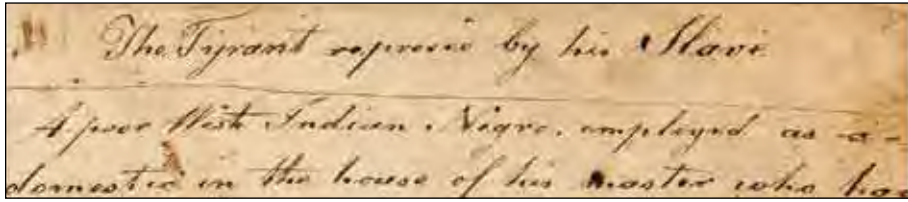 The Tyrant reprovie by his Slave
A poor West Indian Negro, employed as a
domestic in the house of his master who had